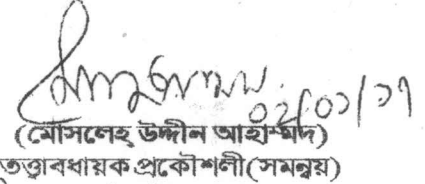 ০২/০১/১৭
(মোসলেহ্ উদ্দীন আহাম্মদ)
তত্ত্বাবধায়ক প্রকৌশলী(সমন্বয়)